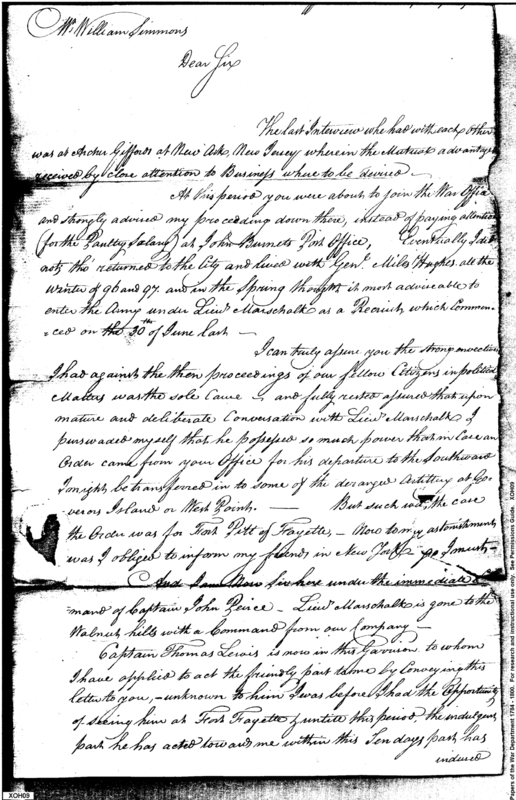 Mr. William Simmons
Dear Sir
The last Interview whe had with each Other
was at Archer Giffords at New Ark New Jersey wherein the Mutual advantages
received by close attention to Business where to be derived —
At this period you were about to join the War Office
and strongly advised my proceeding down there, instead of paying attention
(for the Paultry Salary) at John Burnets Post Office, Eventually I did
not, tho' returned to the City and lived with Genl. Miles Hughes all the
Winter of 96 and 97. and in the Spring thought it most adviseable to
enter the Army under Lieut. Marschalk as a Recruit, which Commen-
=ced on the 30th of June last —
I can truly assure you the strong
I had against the then proceedings of our fellow Citizens in political
Matters was the sole Cause, and fully rested assured that upon
mature and deliberate Conversation with Lieut. Marschalk I
purswaded myself that he possessed so much power that in Case an
Order came from your Office for his departure to the Southward
I might be transferred in to some of the deranged Artillery at Go-
verns Island or West Point. — But such was, the case
the Order was for Fort Pitt of Fayette, — Now to my astonishment
was I obliged to inform my friends in New York go I must —
And I am Now Sir here under the immediate Com
mand of Captain John Peirce — Lieut. Marschalk is gone to the
Walnut hills with a Command from our Company —
Captain Thomas Lewis is now in this Garrison to whom
I have applied to act the friendly part to me by Conveying this
letter to you, — unknown to him I was before I had the Opportunity
of seeing him at Fort Fayette, & untill this period, the indulgent
part he has acted toward me within this Ten days past has
induced
XOH09
Papers of the War Department 1784 - 1800. For research and instructional use only. See Permissions Guide. XOH09